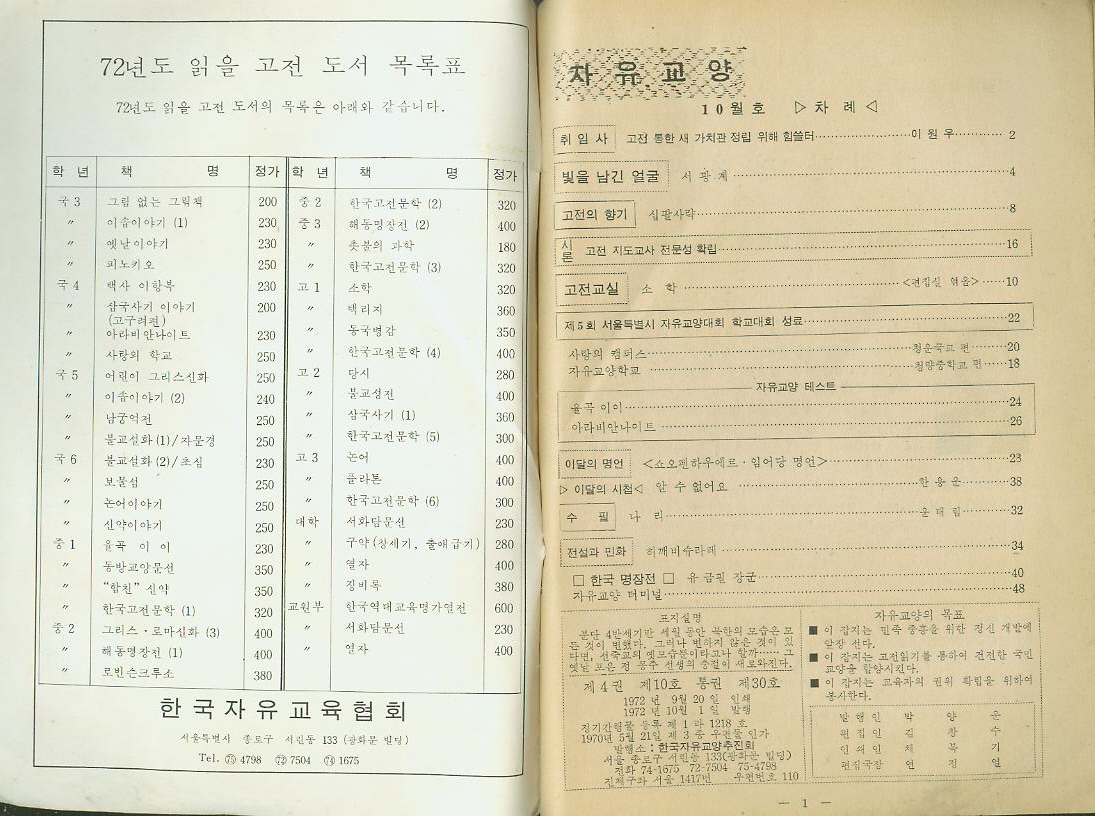 72년도 읽을 고전 도서 목록표
72년도 읽을 고전 도서의 목록은 아래와 같습니다.
학 년 책 명 정가 학 년 책 명 정가
국 3 그림 없는 그림책 200 중 2 한국고전문학 (2) 320
〃 이솝이야기 (1) 230 중 3 해동명장전 (2) 400
〃 옛날이야기 230 〃 촛불의 과학 180
〃 피노키오 250 〃 한국고전문학 (3) 320
국 4 백사 이항복 230 고 1 소학 320
〃 삼국사기 이야기 200 〃 택리지 360
(고구려편)
〃 아라비안나이트 230 〃 동국병감 350
〃 사랑의 학교 250 〃 한국고전문학 (4) 400
국 5 어린이 그리스신화 250 고 2 당시 280
〃 이솝이야기 (2) 240 〃 불교성전 400
〃 남궁억전 250 〃 삼국사기 (1) 360
〃 불교설화 (1) / 자문경 250 〃 한국고전문학 (5) 300
국 6 불교설화 (2) / 초심 230 고 3 논어 400
〃 보물섬 250 〃 플라톤 400
〃 논어이야기 250 〃 한국고전문학 (6) 300
〃 신약이야기 250 대학 서화담문선 230
중 1 율곡 이 이 230 〃 구약 (창세기, 출애급기) 280
〃 동방교양문선 350 〃 열자 400
〃 “합친” 신약 350 〃 징비록 380
〃 한국고전문학 (1) 320 교원부 한국역대교육명가열전 600
중 2 그리스·로마신화 (3) 400 〃 서화담문선 230
〃 해동명장전 (1) 400 〃 열자 400
〃 로빈슨크루소 380
한국자유교육협회
서울특별시 종로구 서린동 133 (광화문 빌딩)
Tel. ㊄ 4798 ㊆ 7504 ㊆ 1675
자유교양
10월호 ▷차 례◁
취임사 고전 통한 새 가치관 정립 위해 힘쓸터 이 원 우 2
빛을 남긴 얼굴 서 광 계 4
고전의 향기 십팔사략 8
시론 고전 지도교사 전문성 확립 16
고전교실 소 학 <편집실 엮음> 10
제5회 서울특별시 자유교양대회 학교대회 성료 22
사랑의 캠퍼스 청운국교 편 20
자유교양학교 청량중학교 편 18
자유교양 테스트
율곡 이이 24
아라비안나이트 26
이달의 명언 <쇼오펜하우에르·임어당 명언> 23
▷이달의 시첩◁ 알 수 없어요 한 용 운 38
수 필 나 리 윤 태 림 32
전설과 민화 히깨비슈라레 34
□ 한국 명장전 □ 유금필 장군 40
자유교양 터미널 48
표지설명
분단 4반세기만 세월 동안 북한의 모습은 모
든 것이 변했다. 그러나 변하지 않은 것이 있
다면, 선죽교의 옛모습뿐이라고나 할까…… 그
옛날 포은 정 몽주 선생의 충절이 새로와진다.
제4권 제10호 통권 제30호
1972 년 9월 20 일 인쇄
1972 년 10월 1 일 발행
정기간행물 등록 제 1 라 1218 호
1970년 5월 21일 제 3 종 우편물 인가
발행소 : 한국자유교양추진회
서울 종로구 서린동 133(광화문 빌딩)
전화 74-1675 72-7504 75-4798
진체구좌 서울 1417번 우편번호 110
자유교양의 목표
■ 이 잡지는 민족 중흥을 위한 정신 개발에
앞장 선다.
■ 이 잡지는 고전읽기를 통하여 건전한 국민
교양을 함양시킨다.
■ 이 잡지는 교육자의 권위 확립을 위하여
봉사한다.
발 행 인 박 양 운
편 집 인 김 창 수
인 쇄 인 채 복 기
편집국장 연 정 열
— 1 —